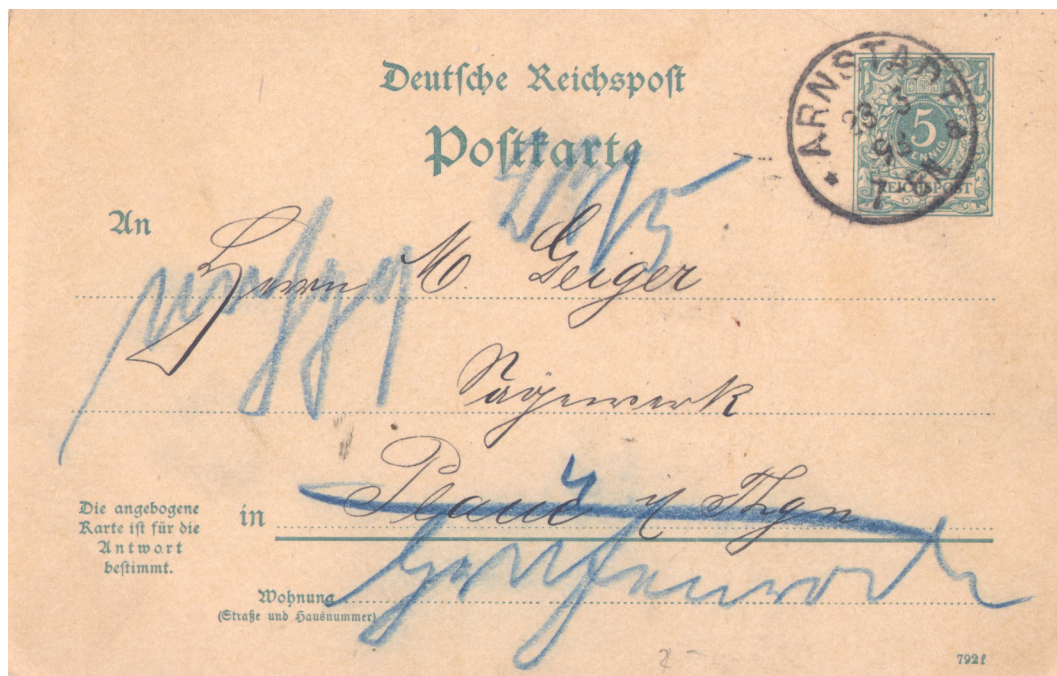 Deutsche Reichspost
Postkarte
ARNSTADT
5
PFENNIG
REICHSPOST
An
Herrn M. Geiger
Sägewerk
in Plaue i/Thgn
Die angebogene
Karte ist für die
Antwort
bestimmt.
Wohnung
(Straße und Hausnummer)
792f